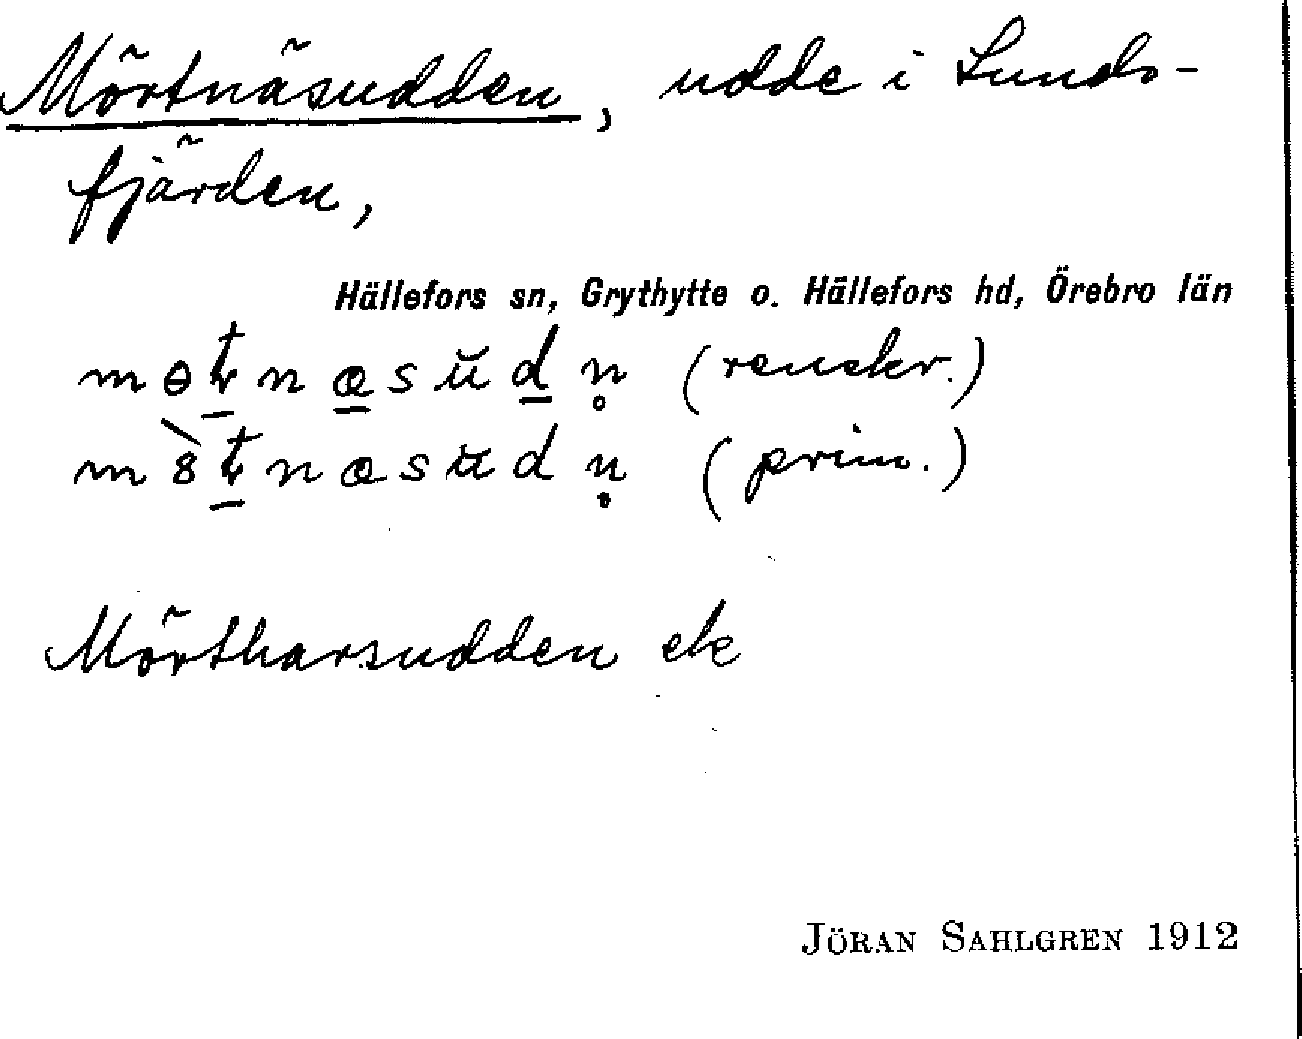 Mörtnäsudden, udde i Lundo-
fjärden,
Hällefors sn, Grythytte o. Hällefors hd, Örebro län
(renskr.)
(prim.)
Mörtharsudden ek
JÖRAN SAHLGREN 1912